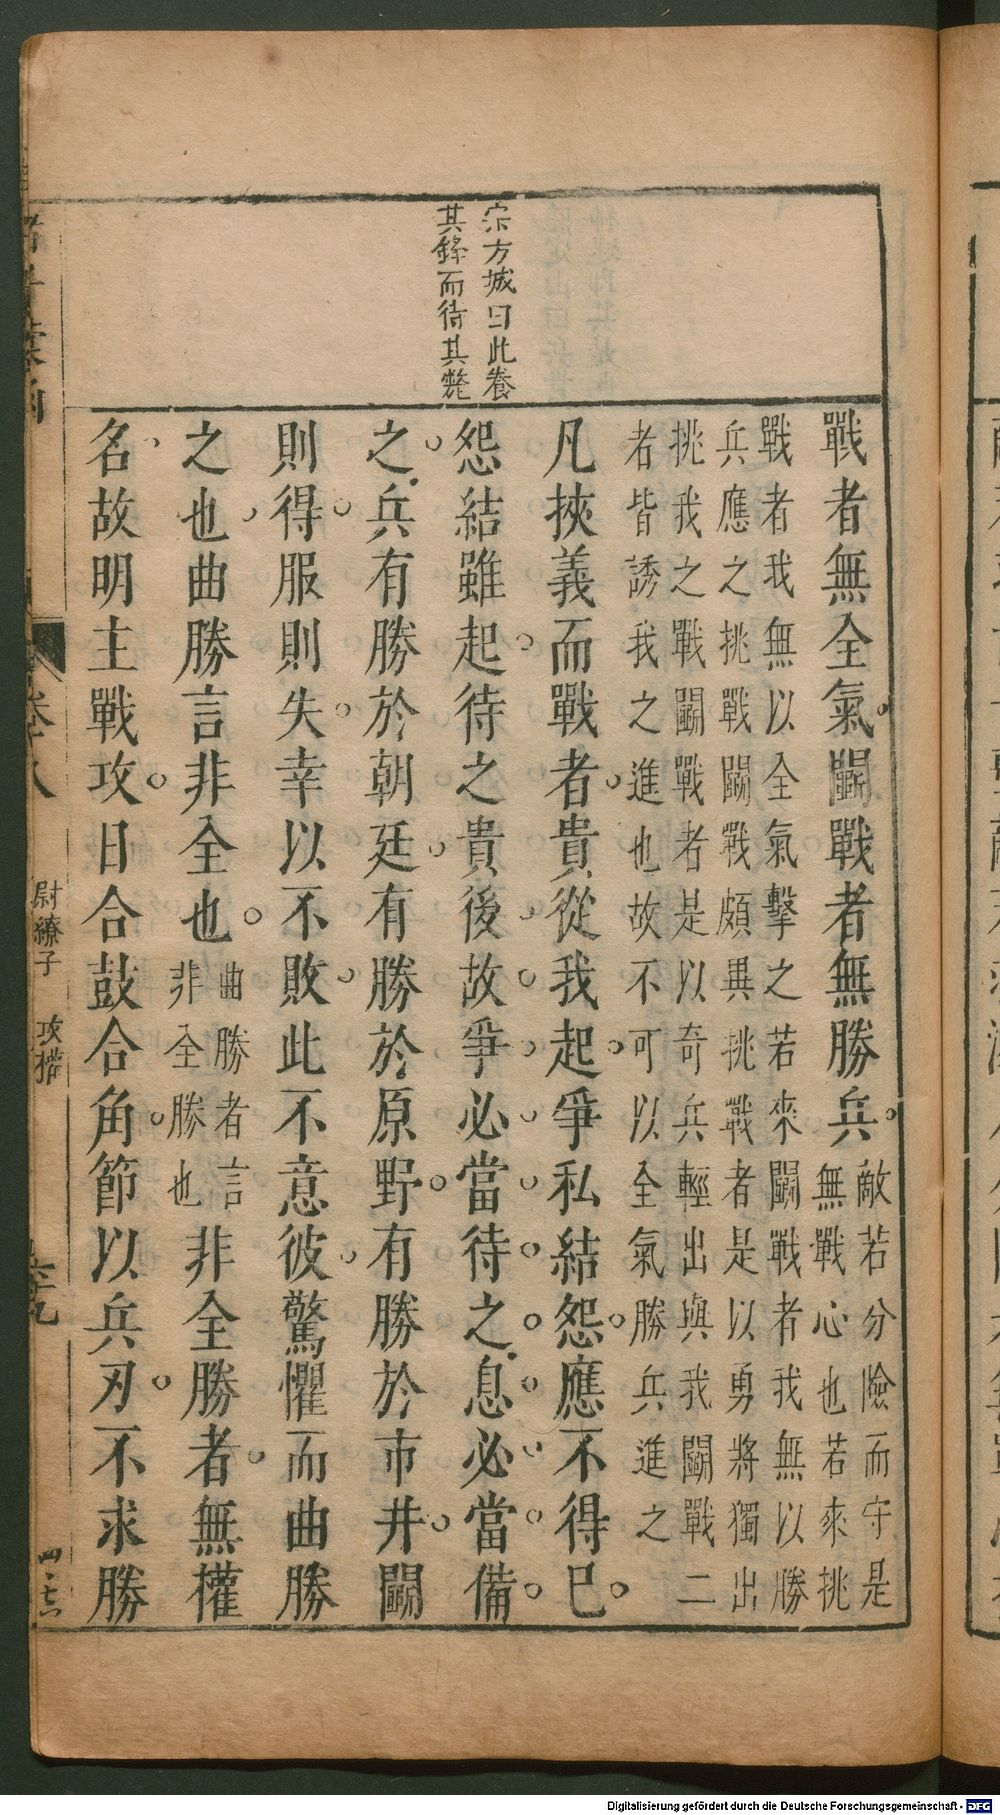 宗方城曰此養
其鋒而待其斃
戰者無全氣鬬戰者無勝兵敵若分險而守是
無戰心也若來挑
戰者我無以全氣擊之若來鬬戰者我無以勝
兵應之挑戰鬬戰頗異挑戰者是以勇將獨出
挑我之戰鬬戰者是以奇兵輕出與我鬬戰二
者皆誘我之進也故不可以全氣勝兵進之
凡挾義而戰者貴從我起爭私結怨應不得已
怨結雖起待之貴後故爭必當待之息必當備
之兵有勝於朝廷有勝於原野有勝於市井鬬
則得服則失幸以不敗此不意彼驚懼而曲勝
之也曲勝言非全也曲勝者言
非全勝也
非全勝者無權
名故明主戰攻日合鼓合角節以兵刃不求勝
卷八
尉繚子
攻權
Digitalisierung gefördert durch die Deutsche Forschungsgemeinschaft - DFG